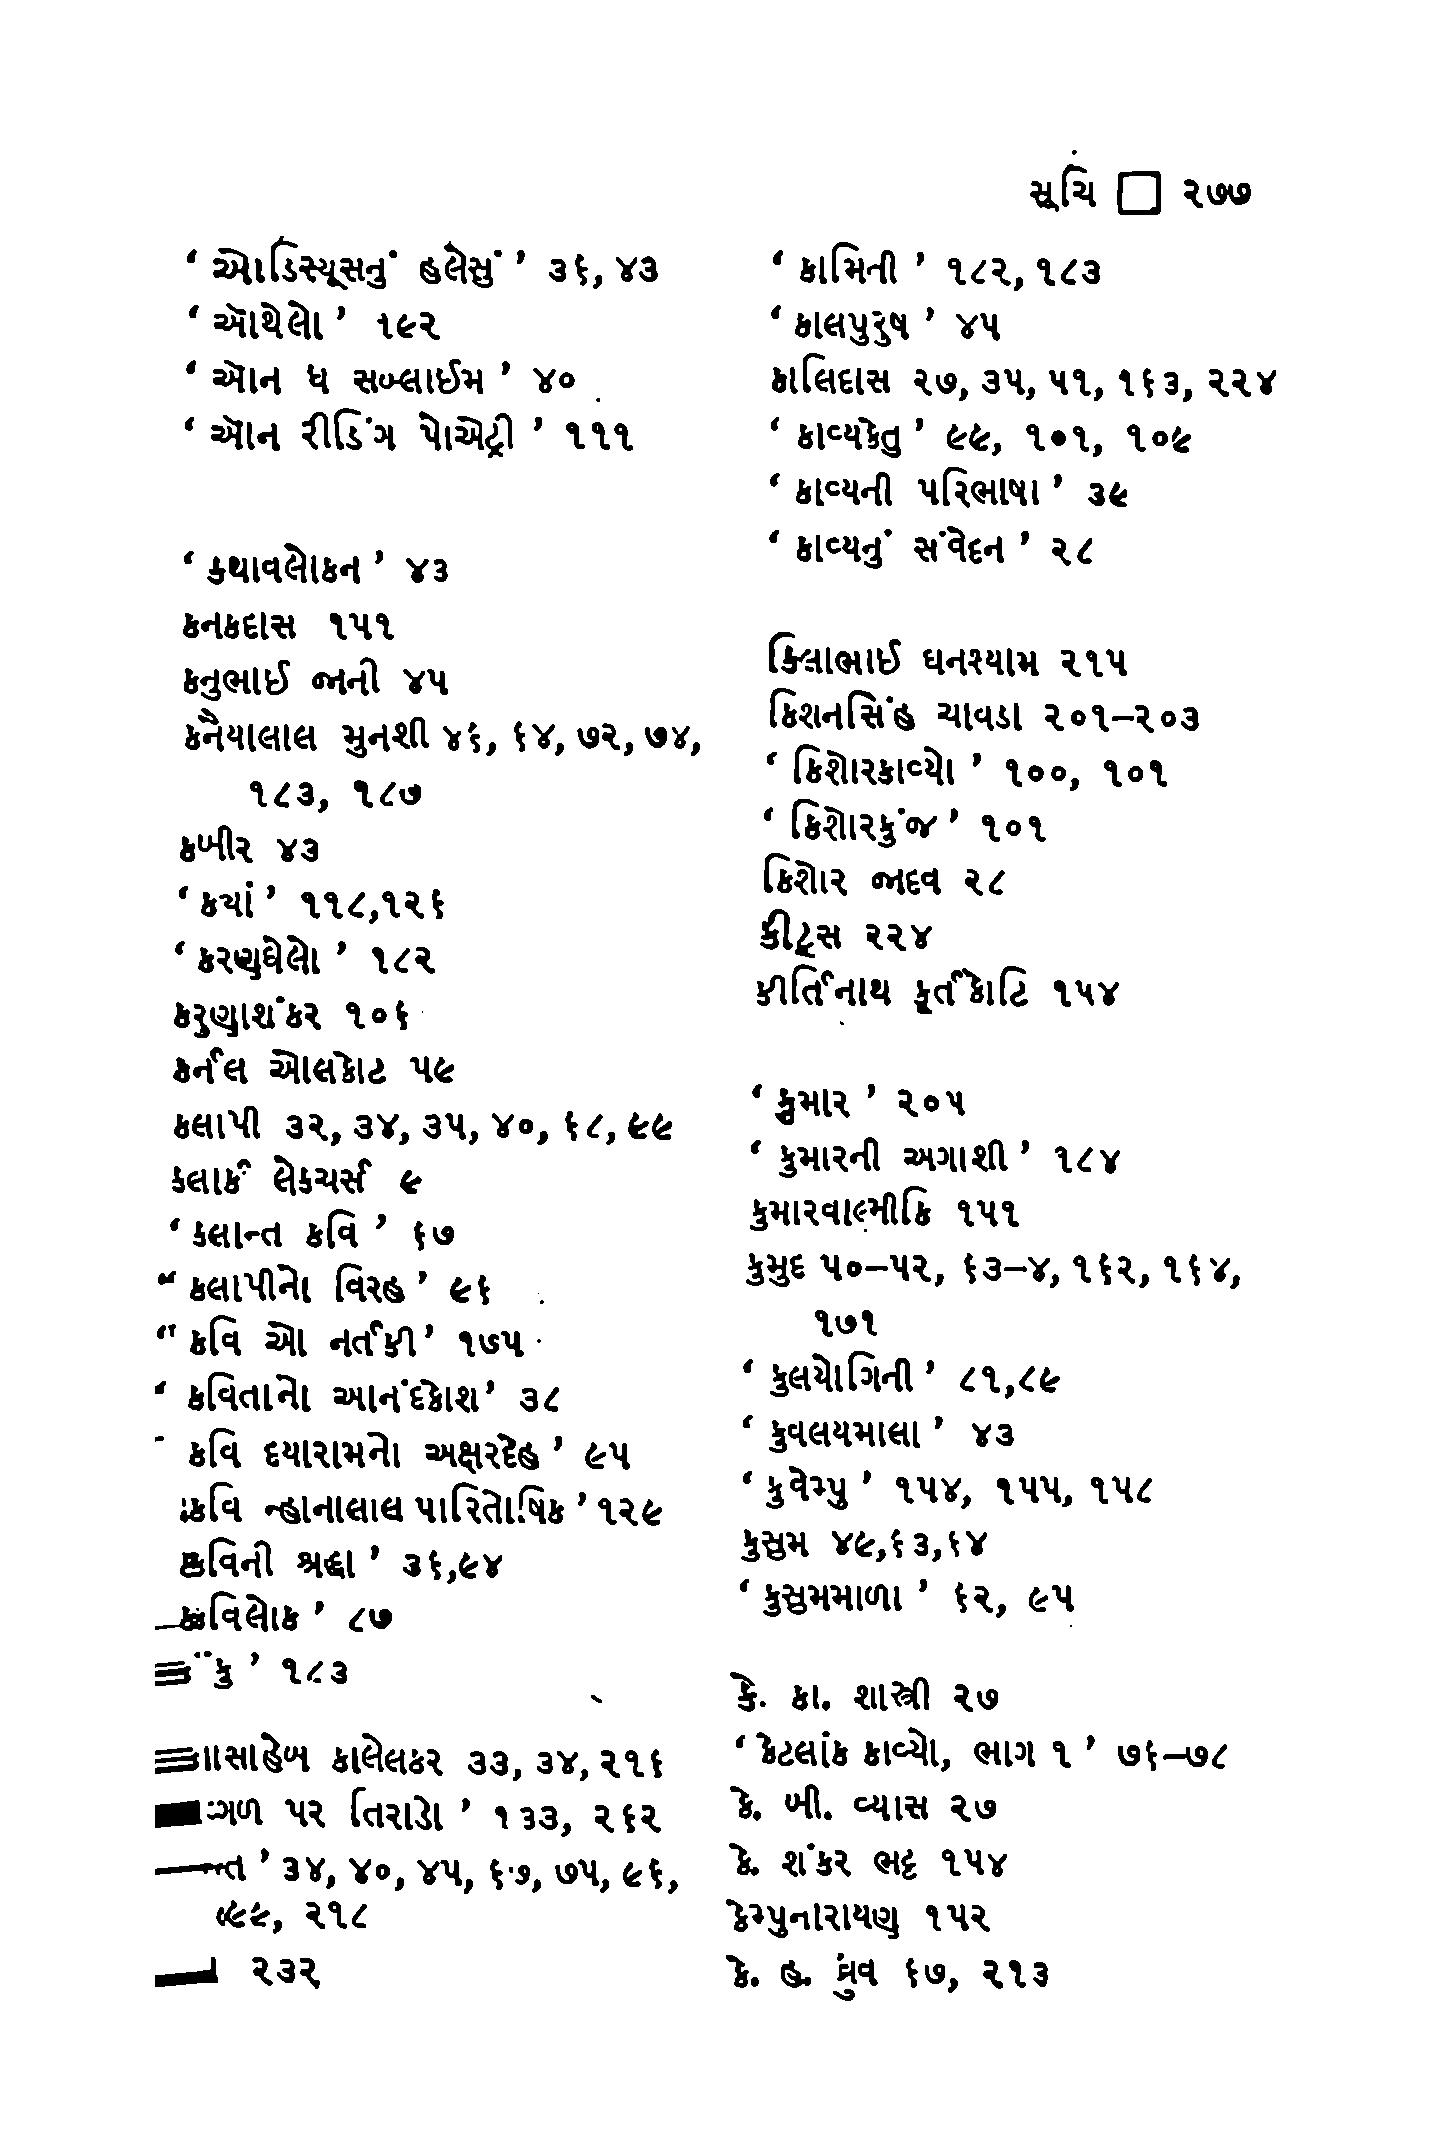 સૂચિ □ ૨૭૭
‘ ઓડિસ્યૂસનું હલેસું ’ ૩૬, ૪૩
‘ ઑથેલો ’ ૧૯૨
‘ ઑન ધ સબ્લાઈમ ’ ૪૦
‘ ઑન રીડિંગ પોએટ્રી ’ ૧૧૧
‘ કથાવલોકન ’ ૪૩
કનકદાસ ૧૫૧
કનુભાઈ જાની ૪૫
કનૈયાલાલ મુનશી ૪૬, ૬૪, ૭૨, ૭૪,
૧૮૩, ૧૮૭
કબીર ૪૩
‘ કયાં ’ ૧૧૮,૧૨૬
‘ કરણઘેલો ’ ૧૮૨
કરુણાશંકર ૧૦૬
કર્નલ ઓલકોટ ૫૯
કલાપી ૩૨, ૩૪, ૩૫, ૪૦, ૬૮, ૯૯
કલાર્ક લેકચર્સ ૯
‘ કલાન્ત કવિ ’ ૬૭
‘ કલાપીનો વિરહ ’ ૯૬
‘ કવિ ઓ નર્તકી’ ૧૭૫
‘ કવિતાનો આનંદકોશ’ ૩૮
કવિ દયારામનો અક્ષરદેહ ’ ૯૫
કવિ ન્હાનાલાલ પારિતોષિક ’ ૧૨૯
કવિની શ્રદ્ધા ’ ૩૬,૯૪
કવિલોક ’ ૮૭
કંકુ ’ ૧૮૩
કાસાહેબ કાલેલકર ૩૩, ૩૪, ૨૧૬
ગળ પર તિરાડો ’ ૧૩૩, ૨૬૨
ન્ત ’ ૩૪, ૪૦, ૪૫, ૬૭, ૭૫, ૯૬,
૯૯, ૨૧૮
૨૩૨
‘ કામિની ’ ૧૮૨, ૧૮૩
‘ કાલપુરુષ ’ ૪૫
કાલિદાસ ૨૭, ૩૫, ૫૧, ૧૬૩, ૨૨૪
‘ કાવ્યકેતુ ’ ૯૯, ૧૦૧, ૧૦૯
‘ કાવ્યની પરિભાષા ’ ૩૯
‘ કાવ્યનું સંવેદન ’ ૨૮
કિલાભાઈ ઘનશ્યામ ૨૧૫
કિશનસિંહ ચાવડા ૨૦૧–૨૦૩
‘ કિશોરકાવ્યો ’ ૧૦૦, ૧૦૧
‘ કિશોરકુંજ ’ ૧૦૧
કિશોર જાદવ ૨૮
કીટ્સ ૨૨૪
કીર્તિનાથ કૂર્તકોટિ ૧૫૪
‘ કુમાર ’ ૨૦૫
‘ કુમારની અગાશી ’ ૧૮૪
કુમારવાલ્મીકિ ૧૫૧
કુમુદ ૫૦–૫૨, ૬૩–૪, ૧૬૨, ૧૬૪,
૧૭૧
‘ કુલયોગિની ’ ૮૧,૮૯
‘ કુવલયમાલા ’ ૪૩
‘ કુવેમ્પુ ’ ૧૫૪, ૧૫૫, ૧૫૮
કુસુમ ૪૯,૬૩,૬૪
‘ કુસુમમાળા ’ ૬૨, ૯૫
કે. કા. શાસ્ત્રી ૨૭
‘ કેટલાંક કાવ્યો, ભાગ ૧ ’ ૭૬–૭૮
કે. બી. વ્યાસ ૨૭
કે. શંકર ભટ્ટ ૧૫૪
કેમ્પુનારાયણ ૧૫૨
કે. હ. ધ્રુવ ૬૭, ૨૧૩